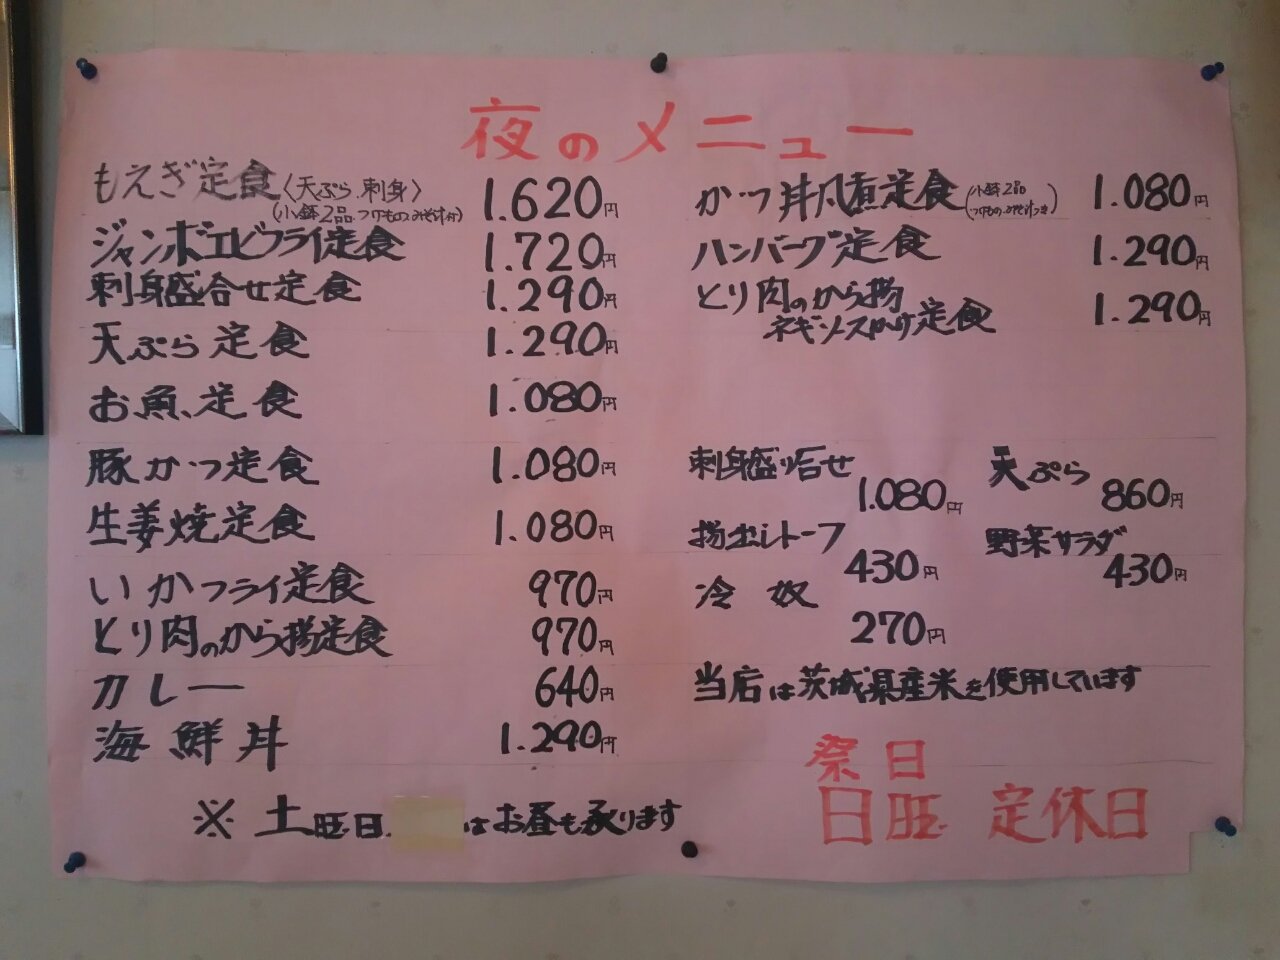 夜のメニュー
もえぎ定食〈天ぷら.刺身〉 1.620円
(小鉢2品.つけもの.みそ汁付)
ジャンボエビフライ定食 1.720円
刺身盛合せ定食 1.290円
天ぷら定食 1.290円
お魚定食 1.080円
豚かつ定食 1.080円
生姜焼定食 1.080円
いかフライ定食 970円
とり肉のから揚定食 970円
カレー 640円
海鮮丼 1.290円
※ 土旺日 はお昼も承ります
かつ丼風煮定食(小鉢2品 つけもの.みそ汁つき) 1.080円
ハンバーグ定食 1.290円
とり肉のから揚
ネギソースかけ定食 1.290円
刺身盛り合せ 1.080円
天ぷら 860円
揚出しトーフ 430円
野菜サラダ 430円
冷奴 270円
当店は茨城県産米を使用しています
祭日
日旺 定休日